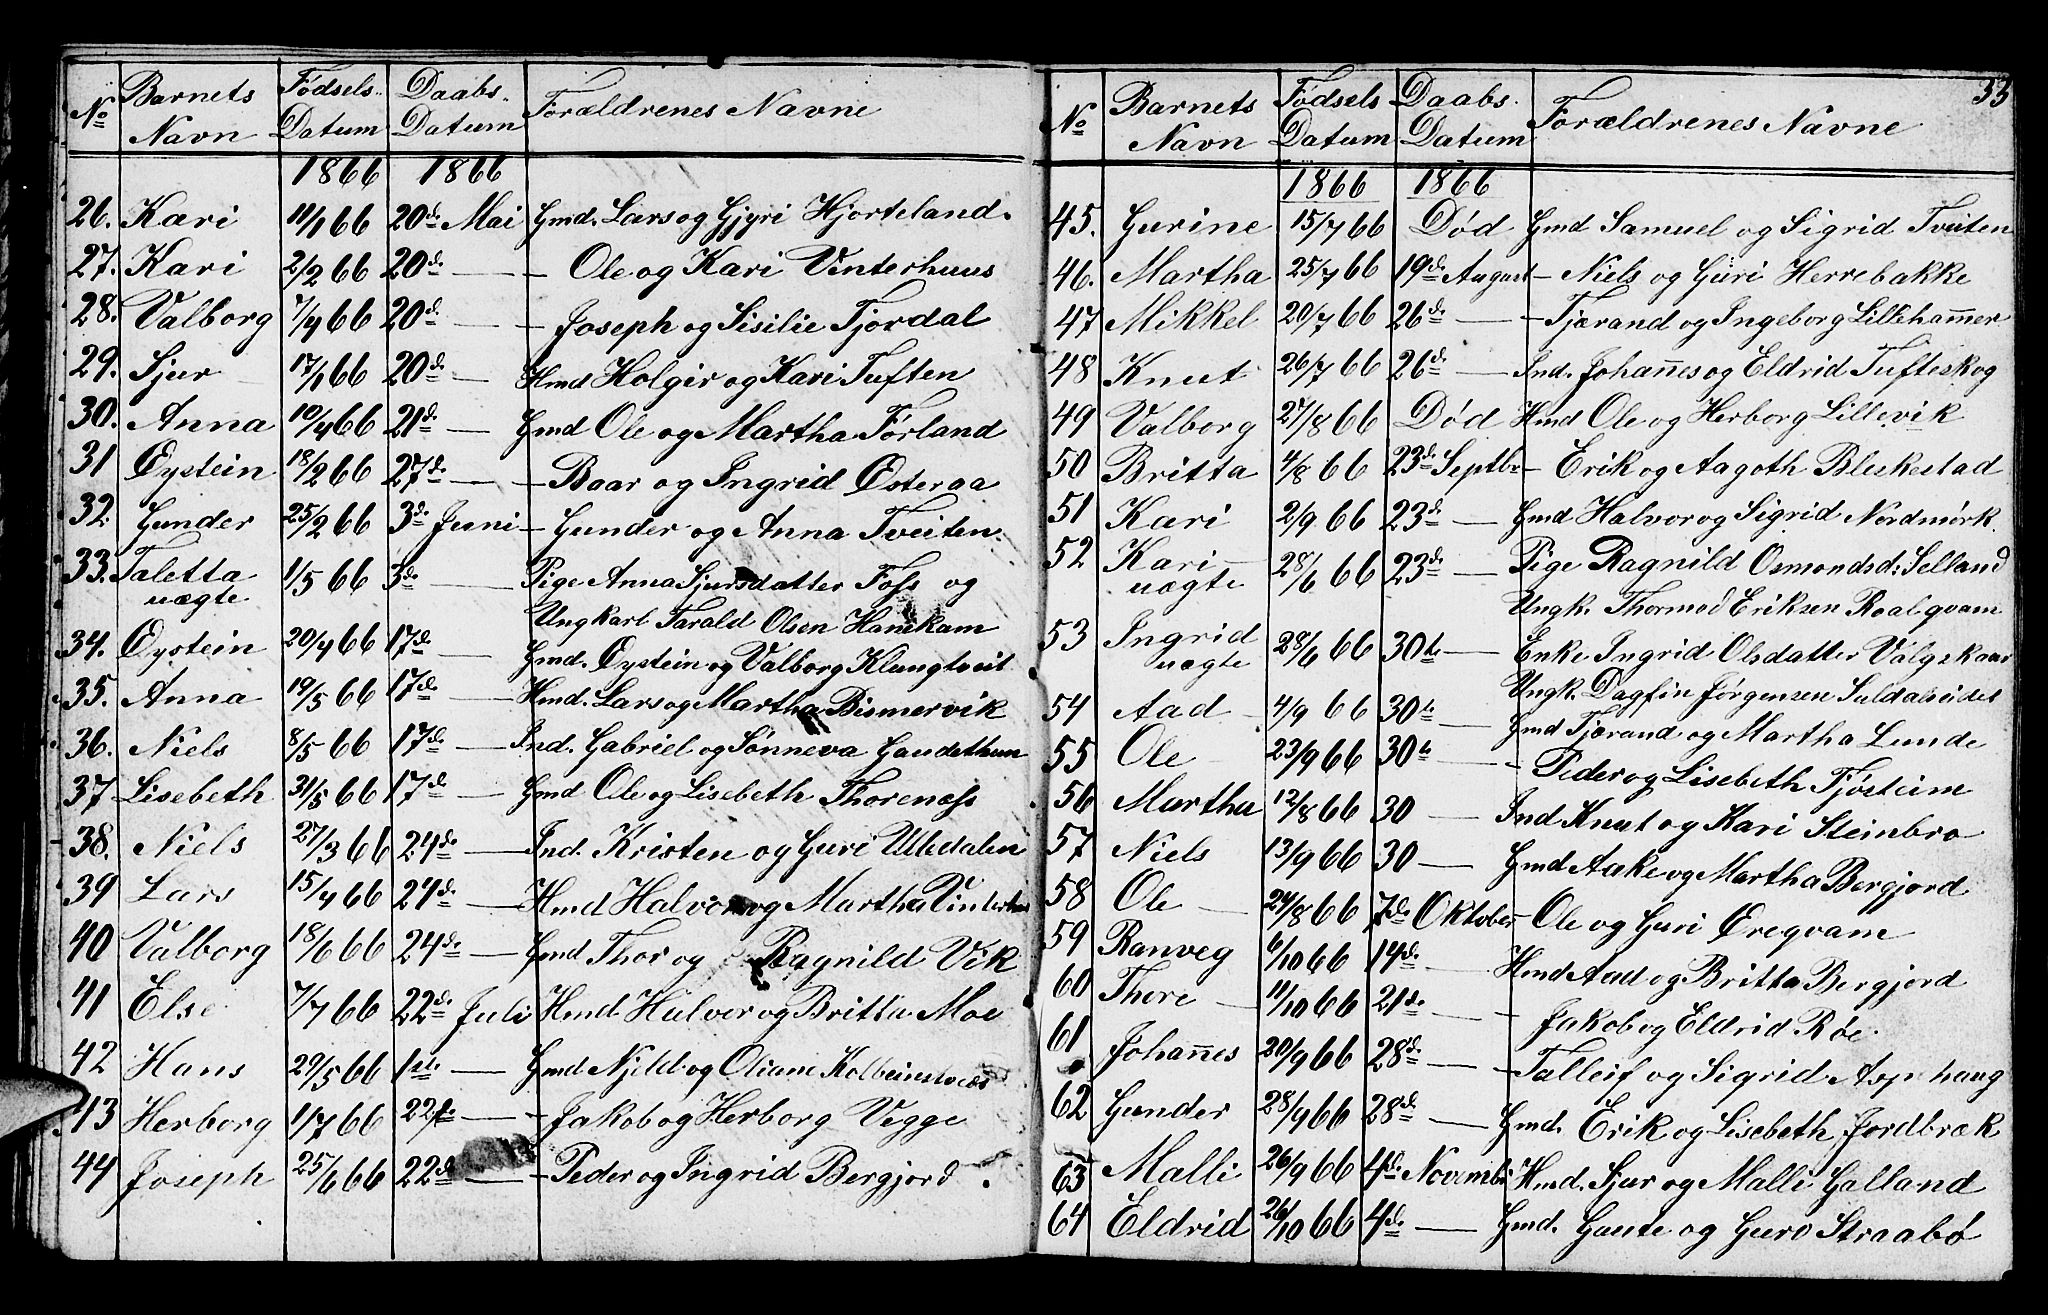 No Barnets Navn Fødsels Datum Daabs Datum Forældrenes Navne
1866 1866
26. Kari 11/1 66 20de Mai Gmd. Lars og Gjyri Hjorteland.
27. Kari 2/2 66 20de — - Ole og Kari Vinterhuus
28. Valborg 7/4 66 20de — - Joseph og Sisilie Fjordal
29. Sjur 17/1 66 20de — Hmd Holgir og Kari Tuften
30. Anna 10/4 66 21de — Gmd Ole og Martha Førland
31 Øystein 18/2 66 27de — - Baar og Ingrid Østeraa
32. Gunder 25/2 66 3de Juni - Gunder og Anna Tveiten.
33. Taletta uægte 1/5 66 3de — Pige Anna Sjursdatter Foss og
Ungkarl Tarald Olsen Hanekam
34. Øystein 20/4 66 17de — Gmd. Øystein og Valborg Klungtveit
35. Anna 19/5 66 17de — Hmd. Lars og Martha Bismervik
36. Niels 8/5 66 17de — Ind. Gabriel og Sønneva Gaudethun
37 Lisebeth 31/5 66 17de — Gmd Ole og Lisebeth Thoreness
38. Niels 27/3 66 24de — Ind. Kristen og Guri Ulledalen
39 Lars 15/4 66 24de — Hmd Halvor og Martha
40 Valborg 18/6 66 24de — Gmd Thor og Ragnild Vik
41 Else 7/7 66 22de Juli Hmd Halvor og Britta Moe
42 Hans 29/5 66 1ste — Gmd Njeld og Oliane
43 Herborg 1/7 66 22de — - Jakob og Herborg Vegge
44 Joseph 25/6 66 22de — - Peder og Ingrid Bergjord.
33
No Barnets Navn Fødsels Datum Daabs. Datum Forældrenes Navne
1866 1866
45. Gurine 15/7 66 Død Gmd Samuel og Sigrid Tveiten
46. Martha 25/7 66 19de August - Niels og Guri Herrebakke
47 Mikkel 20/7 66 26de — - Tjærand og Ingeborg Lilleham̄er
48 Knut 26/7 66 26de — Ind. Johan̄es og Eldrid Tufteskog
49 Valborg 27/8 66 Død Hmd Ole og Herborg Lillevik
50 Britta 4/8 66 23de Septbr - Erik og Aagoth Blekestad
51 Kari 2/9 66 23de — Gmd Halvor og Sigrid Nordmørk.
52 Kari uægte 28/6 66 23de — Pige Ragnild Osmondsd: Selland
Ungk. Thormod Eriksen Roalqvam
53 Ingrid uægte 28/6 66 30te — Enke Ingrid Olsdatter
Ungk. Dagfin Jørgensen Suldaleidet
54 Aad 4/9 66 30te — Gmd Tjærand og Martha Lunde
55 Ole 23/9 66 30te — - Peder og Lisebeth Fjøsteim
56 Martha 12/8 66 30 — Ind Knut og Kari Steinbro
57 Niels 13/9 66 30 — Gmd Aake og Martha Bergjord
58 Ole 24/8 66 7de Oktober - Ole og Guri Øreqvam
59 Ranveg 6/10 66 14de — Hmd Aad og Britta Bergjord
60 Thore 11/10 66 21de — - Jakob og Eldrid Røe.
61 Johan̄es 20/9 66 28de — - Talleif og Sigrid Asphaug
62 Gunder 28/9 66 28de — Gmd. Erik og Lisebeth Jordbræk
63 Malli 26/9 66 4de Novemb: Hmd. Sjur og Malli Galland
64 Eldrid 26/10 66 4de — Gmd. Gaute og Guro Straabø